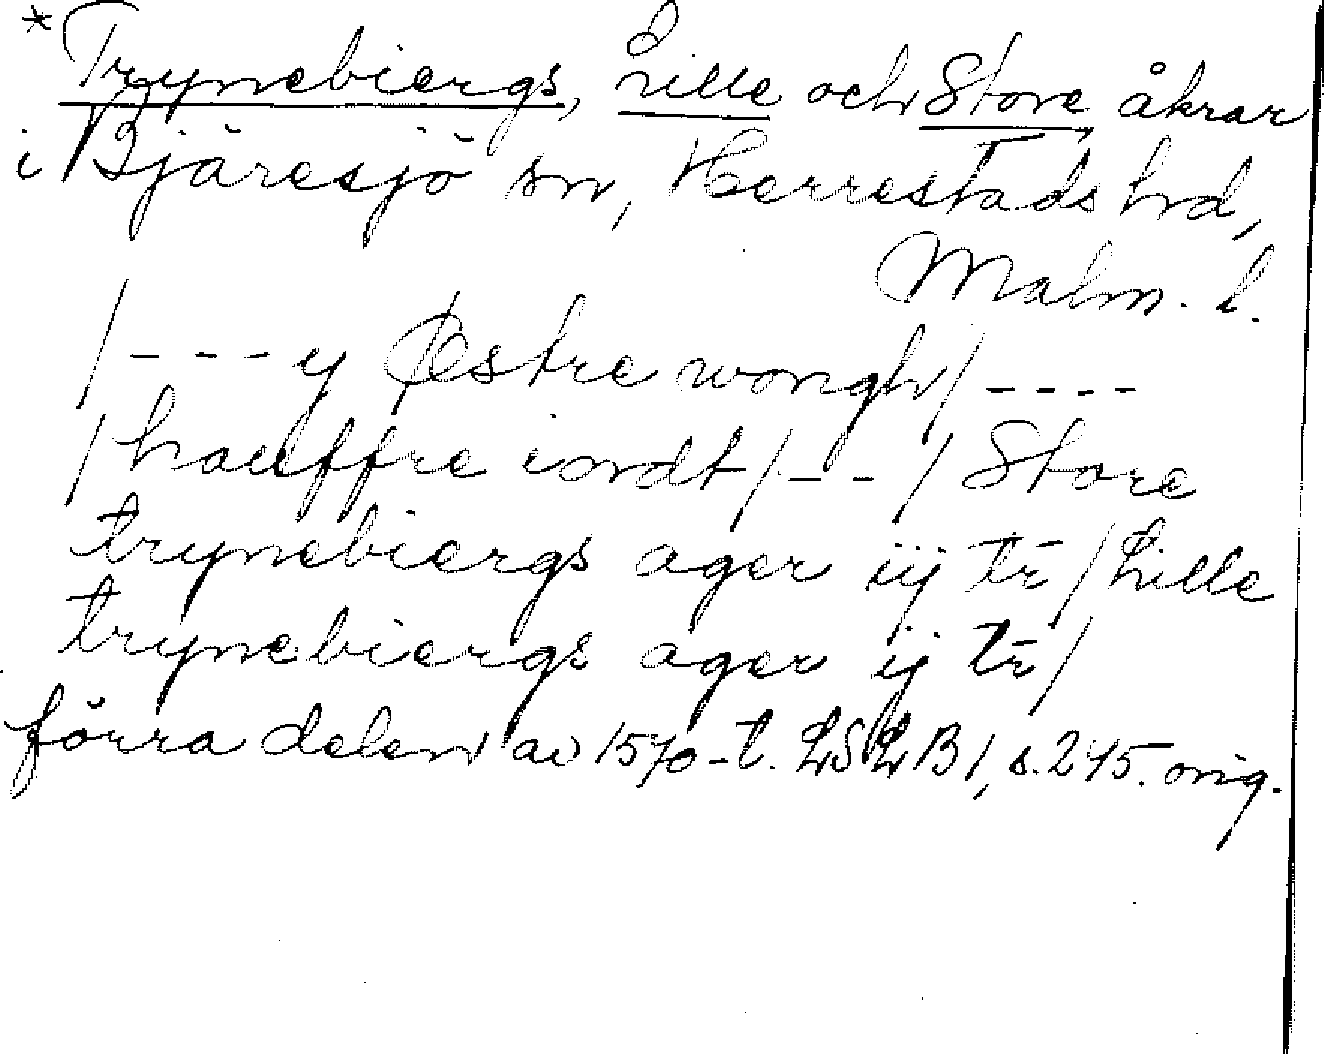 *Trynebiergs, Lille och Store åkrar
i Bjäresjö sn, Herrestads hrd,
Malm. l.
/---y Østre wongh/----
/hauffre iordt/--/ Store
trynebiergs ager iij tr̄/Lille
trynebiergs ager ij tr̄/
förra delen av 1570-t. LSLB1, s. 245. orig.